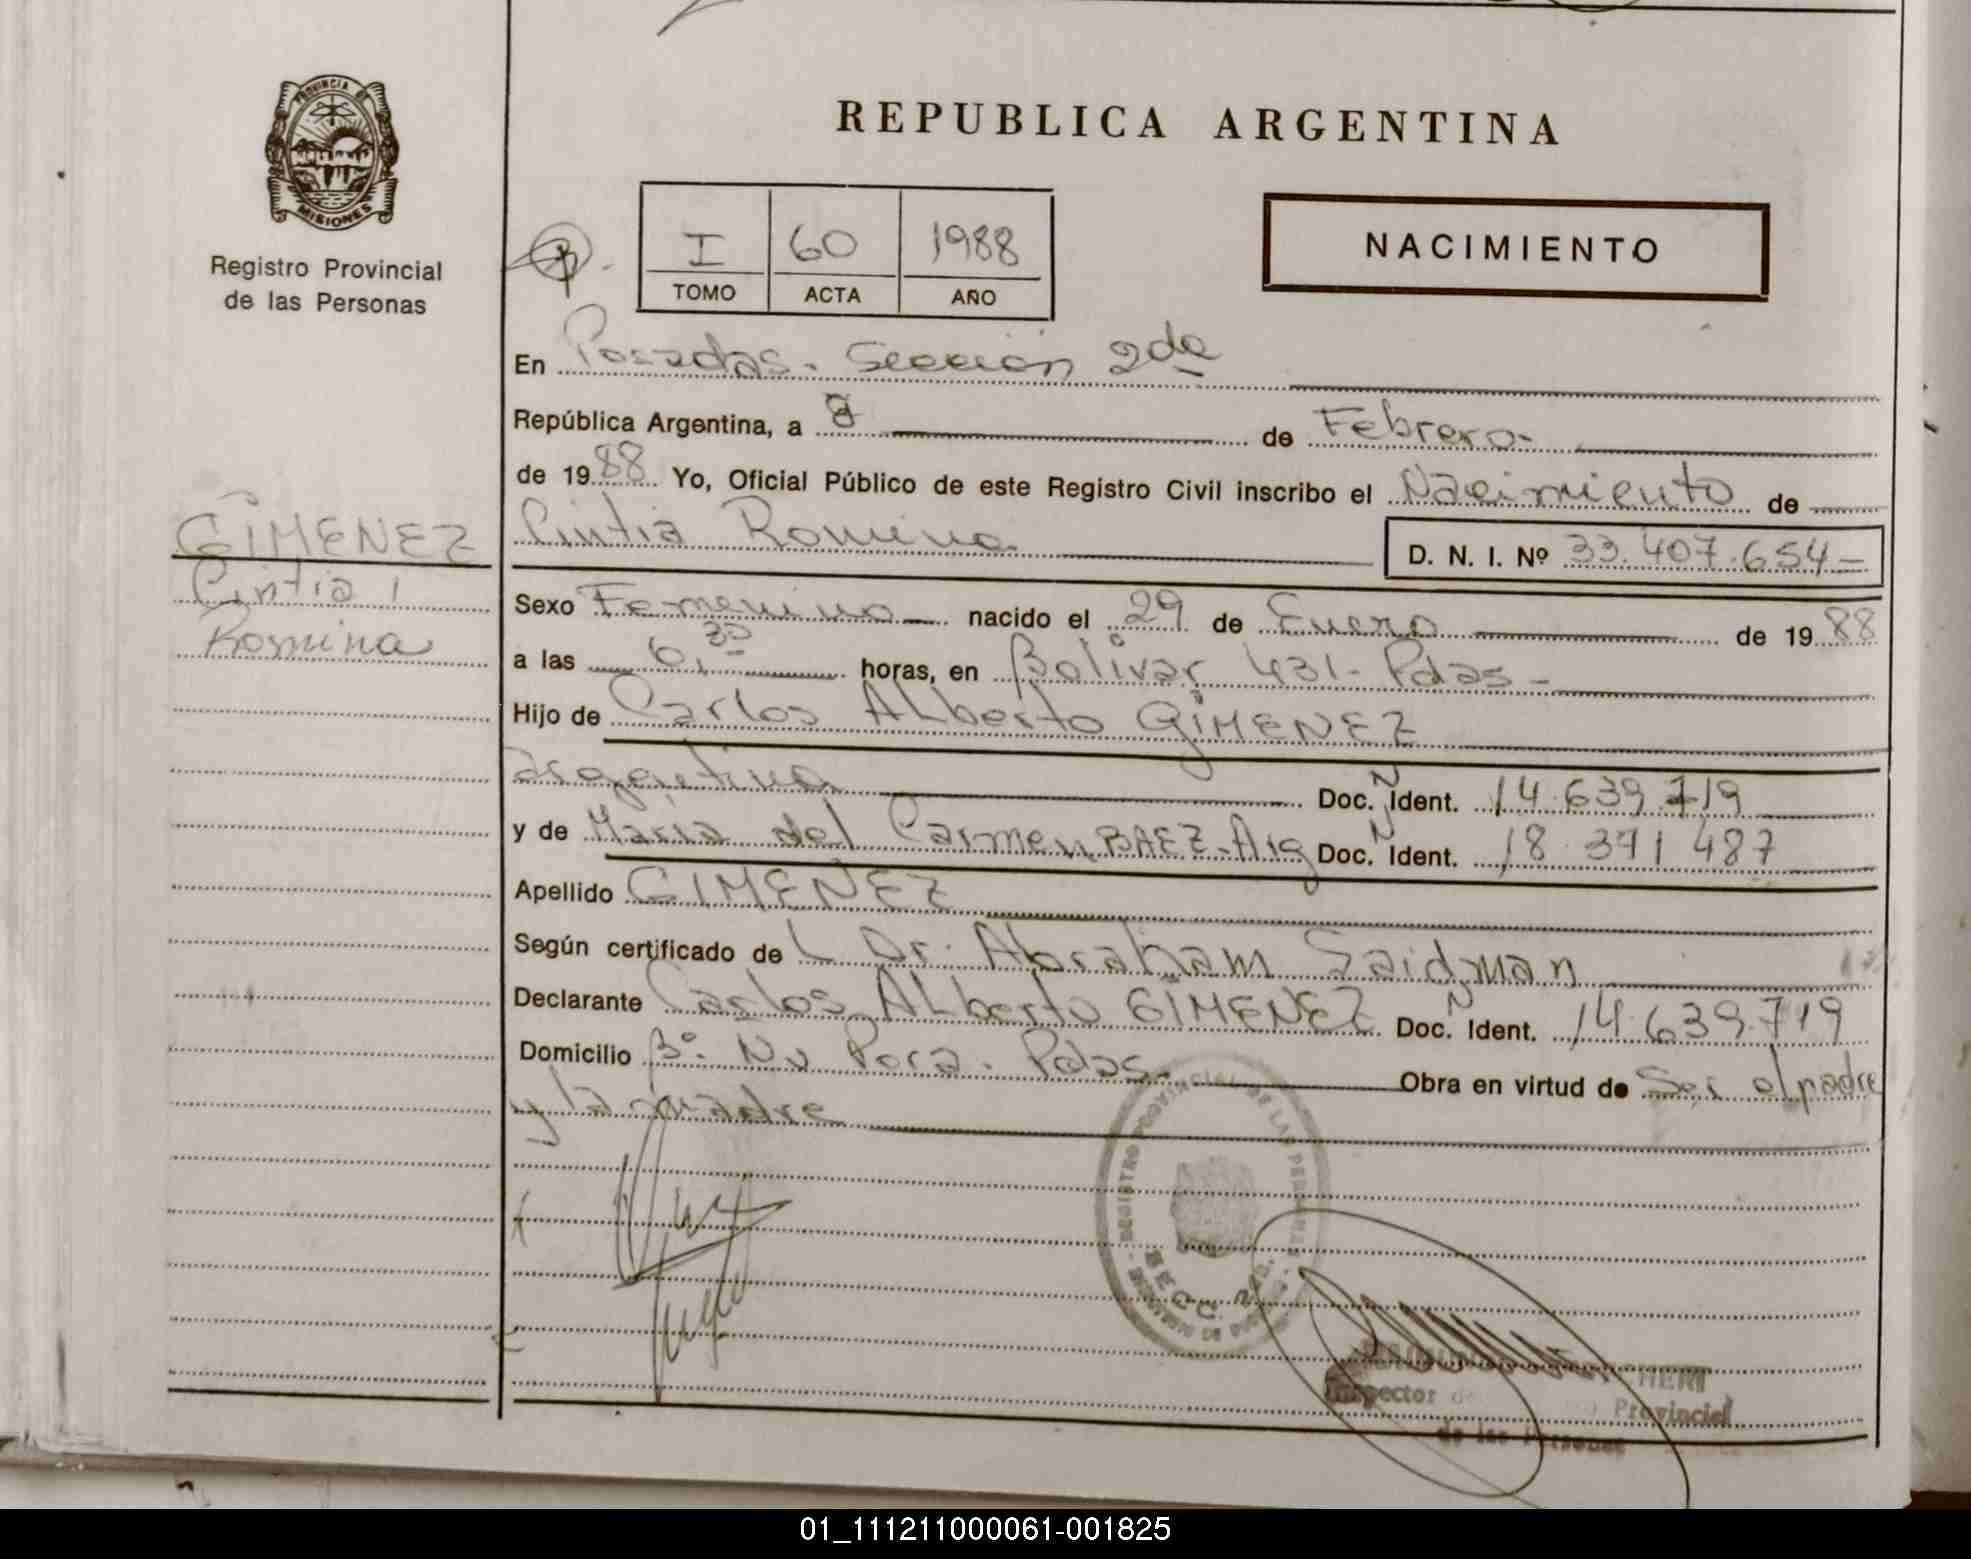 PROVINCIA DE
MISIONES
Registro Provincial
de las Personas
REPUBLICA ARGENTINA
I 60 1988
TOMO ACTA AÑO
NACIMIENTO
En Posadas. Sección 2da
República Argentina, a 8 de Febrero.
de 1988 Yo, Oficial Público de este Registro Civil inscribo el Nacimiento de
Cintia Romina D. N. I. Nº 33.407.654
GIMENEZ
Cintia
Romina
Sexo Femenino nacido el 29 de Enero de 1988
a las 6,30 horas, en Bolivar 431- Pdas-
Hijo de Carlos ALberto GIMENEZ
argentina Doc. N Ident. 14.639.719
y de Maria del Carmen BAEZ-Arg Doc. N Ident. 18.371 487
Apellido GIMENEZ
Según certificado de L Dr. Abraham Saidman
Declarante Carlos ALberto GIMENEZ Doc. N Ident. 14.639.719
Domicilio Bº. Ñu Pora. Pdas. Obra en virtud de Ser el padre
y la madre
REGISTRO PROVINCIAL DE LAS PERSONAS
SECC. 2da.
Inspector de Provincial
de las Personas
01_111211000061-001825